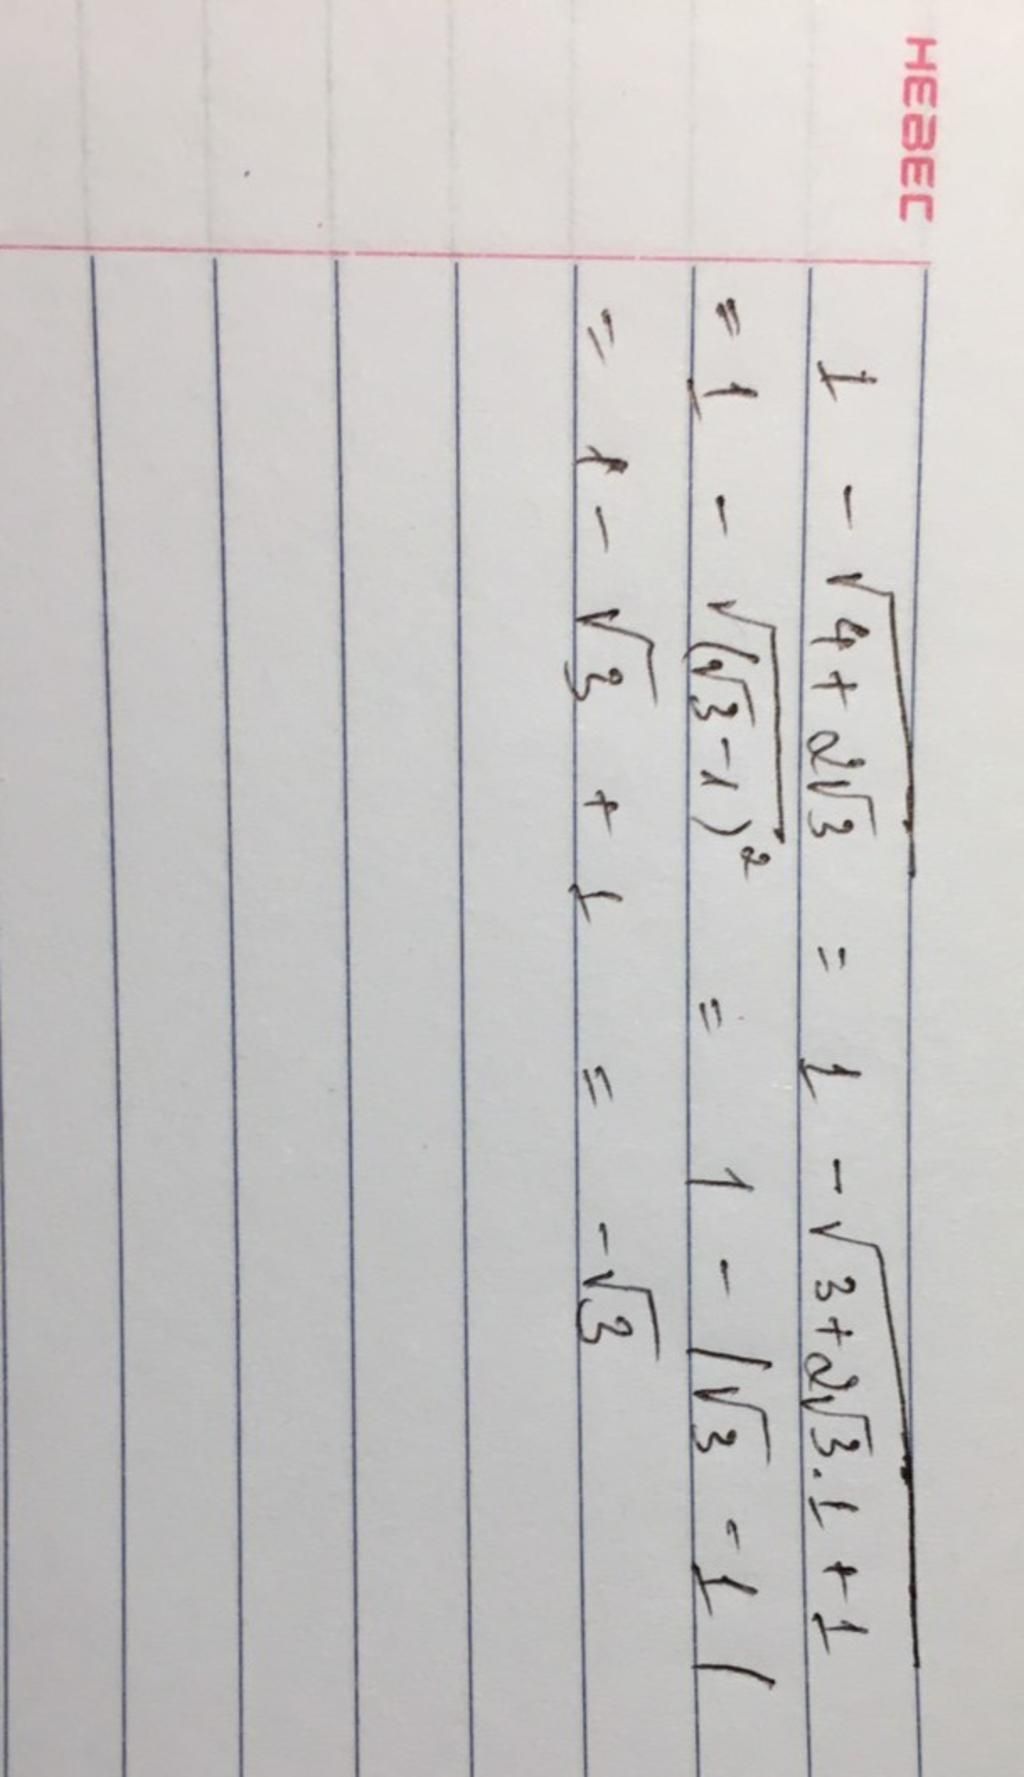 HEBEC
1 - √(4+2√3) = 1 - √(3+2√3.1+1)
= 1 - √((√3-1)²) = 1 - |√3 - 1|
= 1 - √3 + 1 = -√3